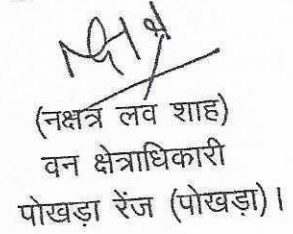 (नक्षत्र लव शाह)
वन क्षेत्राधिकारी
पोखड़ा रेंज (पोखड़ा)।